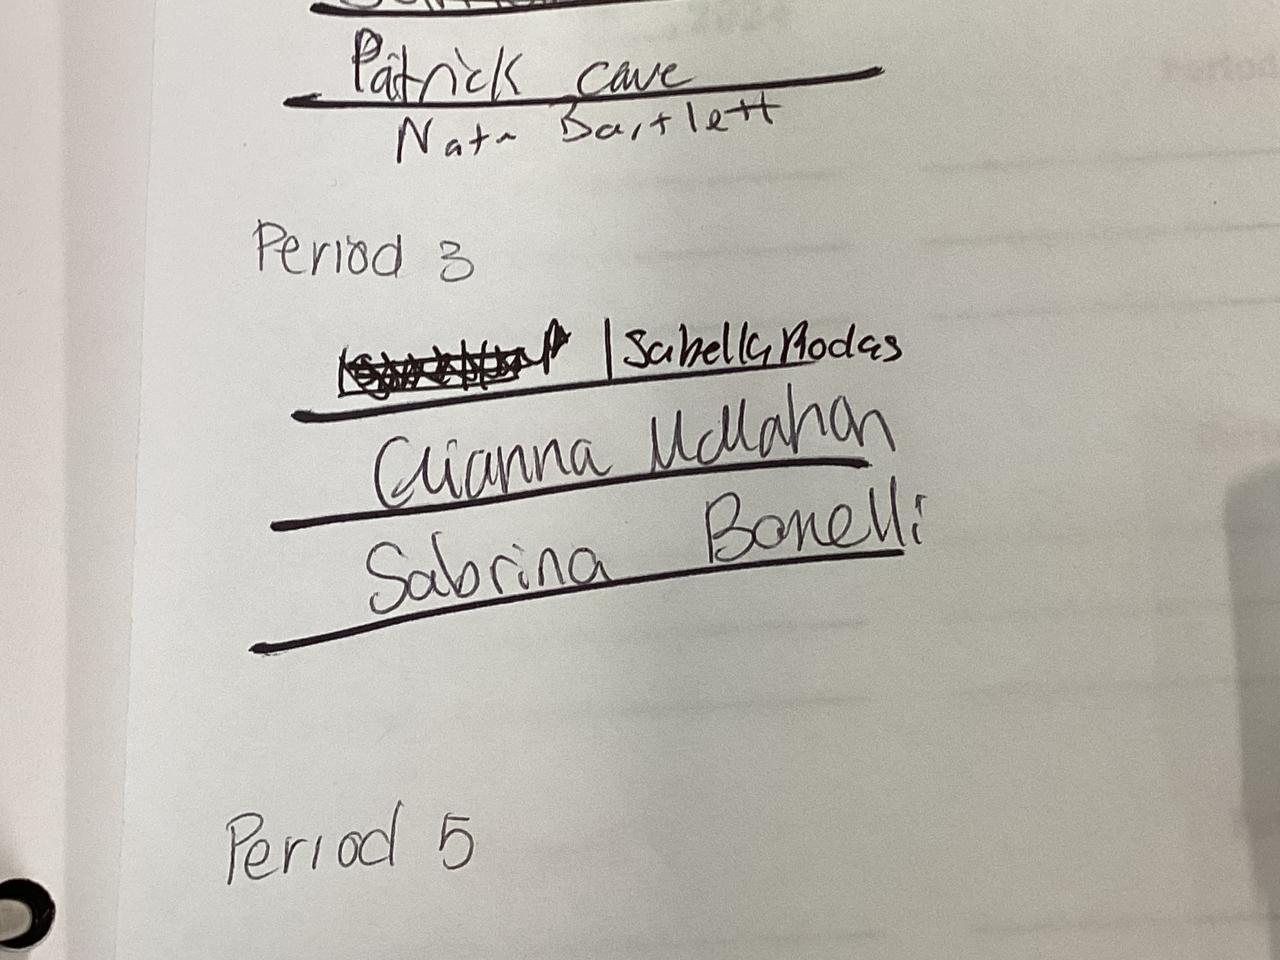 Patrick cave
Nate Bartlett
Period 3
Isabella Rodas
Gianna McMahon
Sabrina Bonelli
Period 5